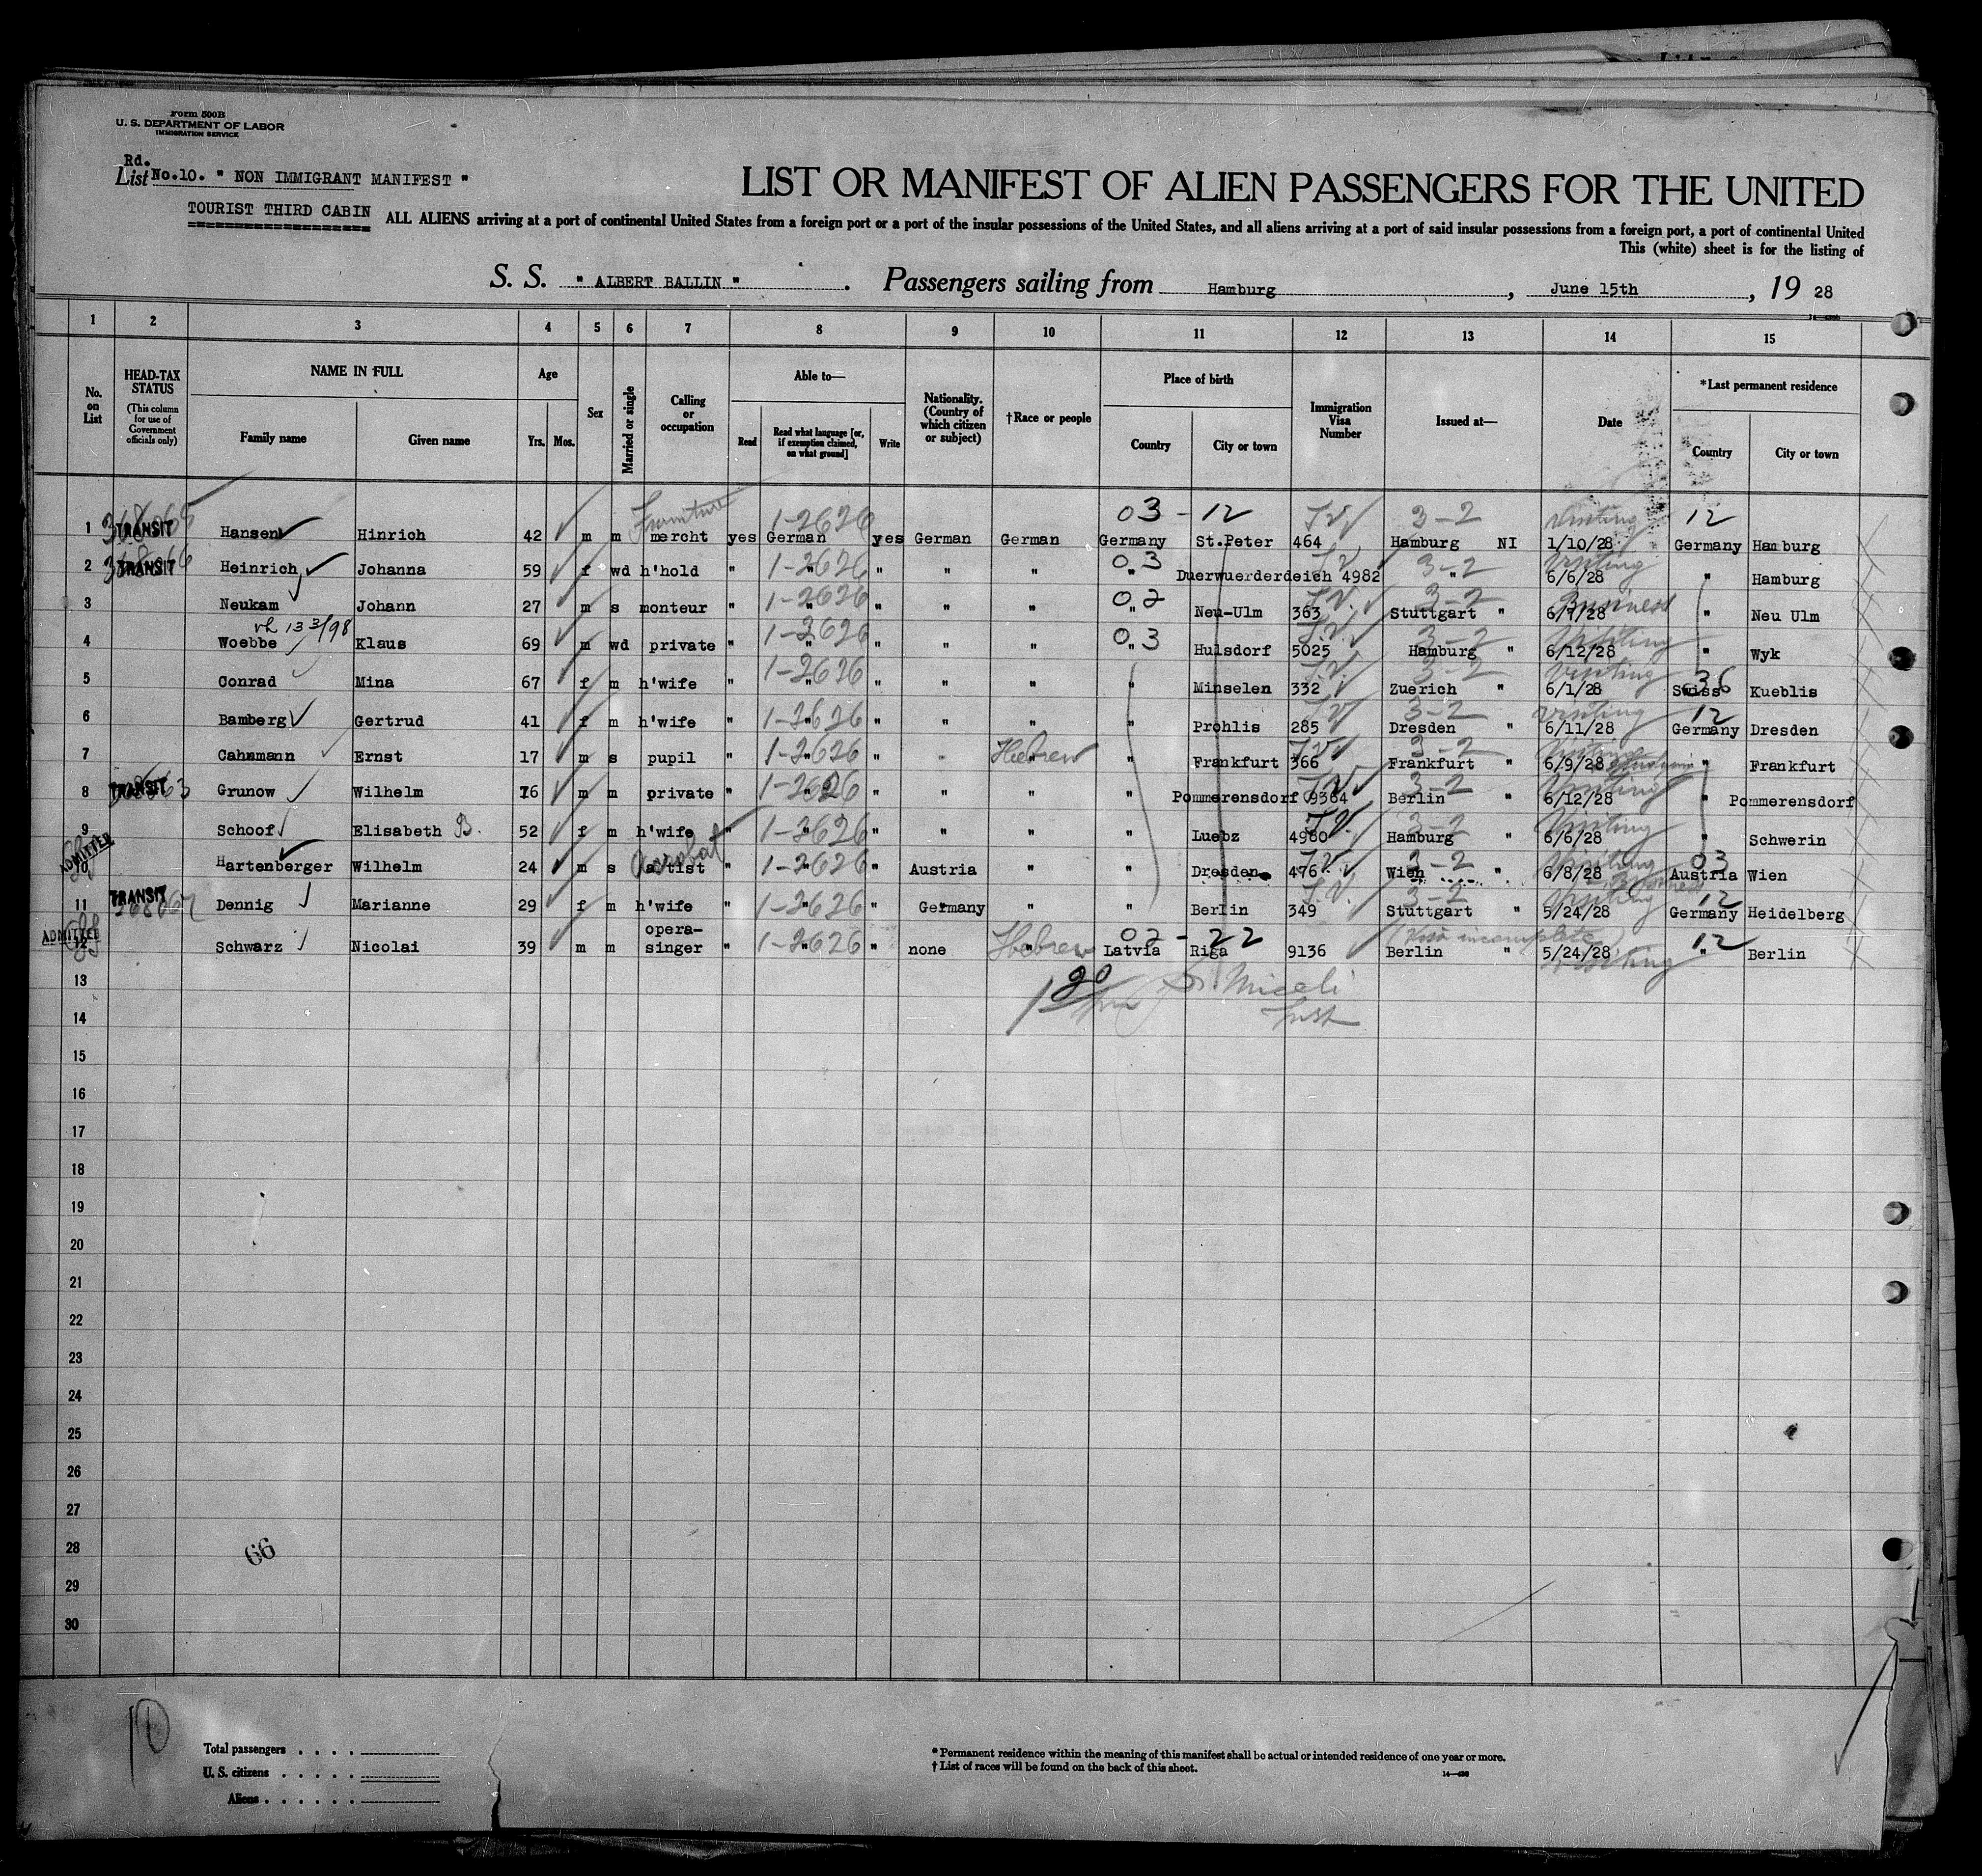 Form 500B
U. S. DEPARTMENT OF LABOR
IMMIGRATION SERVICE
Rd.
List No.10. " NON IMMIGRANT MANIFEST "
LIST OR MANIFEST OF ALIEN PASSENGERS FOR THE UNITED
TOURIST THIRD CABIN
ALL ALIENS arriving at a port of continental United States from a foreign port or a port of the insular possessions of the United States, and all aliens arriving at a port of said insular possessions from a foreign port, a port of continental United
This (white) sheet is for the listing of
S. S. " ALBERT BALLIN " . Passengers sailing from Hamburg , June 15th , 19 28
1 2 3 4 5 6 7 8 9 10 11 12 13 14 15
No. on List
HEAD-TAX STATUS (This column for use of Government officials only)
NAME IN FULL
Family name Given name
Age
Yrs. Mos.
Sex
Married or single
Calling or occupation
Able to—
Read Read what language [or, if exemption claimed, on what ground] Write
Nationality. (Country of which citizen or subject)
†Race or people
Place of birth
Country City or town
Immigration Visa Number
Issued at—
Date
*Last permanent residence
Country City or town
Furniture 1-2626 03 - 12 T.V. 3-2 Visiting 12
1 TRANSIT Hansen Hinrich 42 m m mercht yes German yes German German Germany St.Peter 464 Hamburg NI 1/10/28 Germany Hamburg
1-2626 03 3-2 Visiting
2 TRANSIT Heinrich Johanna 59 f wd h'hold " " " " " " Duerwuerderdeich 4982 " 6/6/28 " Hamburg
1-2626 02 T.V. 3-2 Business
3 Neukam Johann 27 m s monteur " " " " " " Neu-Ulm 363 Stuttgart " 6/7/28 " Neu Ulm
1-2626 03 T.V. 3-2 Visiting
4 Woebbe Klaus 69 m wd private " " " " " " Hulsdorf 5025 Hamburg " 6/12/28 " Wyk
1-2626 T.V. 3-2 Visiting 36
5 Conrad Mina 67 f m h'wife " " " " " " Minselen 332 Zuerich " 6/1/28 Swiss Kueblis
1-2626 T.V. 3-2 Visiting 12
6 Bamberg Gertrud 41 f m h'wife " " " " " " Prohlis 285 Dresden " 6/11/28 Germany Dresden
1-2626 Hebrew T.V. 3-2 Visiting
7 Cahnmann Ernst 17 m s pupil " " " " " " Frankfurt 366 Frankfurt " 6/9/28 " Frankfurt
1-2626 T.V. 3-2 Visiting
8 TRANSIT Grunow Wilhelm 76 m m private " " " " " " Pommerensdorf 9364 Berlin " 6/12/28 " Pommerensdorf
1-2626 T.V. 3-2 Visiting
9 Schoof Elisabeth B. 52 f m h'wife " " " " " " Luebz 4980 Hamburg " 6/6/28 " Schwerin
ADMITTED Acrobat 1-2626 T.V. 3-2 Visiting 03
10 Hartenberger Wilhelm 24 m s artist " " " Austria " " Dresden 476 Wien " 6/8/28 Austria Wien
1-2626 T.V. 3-2 Visiting 12
11 TRANSIT Dennig Marianne 29 f m h'wife " " " Germany " " Berlin 349 Stuttgart " 5/24/28 Germany Heidelberg
ADMITTED opera- 1-2626 Hebrew 02 - 22 Visa incomplete 12
12 Schwarz Nicolai 39 m m singer " " " none " Latvia Riga 9136 Berlin " 5/24/28 " Berlin
Visiting
13
Miceli
14
Insp
15
16
17
18
19
20
21
22
23
24
25
26
27
28
66
29
30
10
Total passengers
U. S. citizens
Aliens
* Permanent residence within the meaning of this manifest shall be actual or intended residence of one year or more.
† List of races will be found on the back of this sheet.